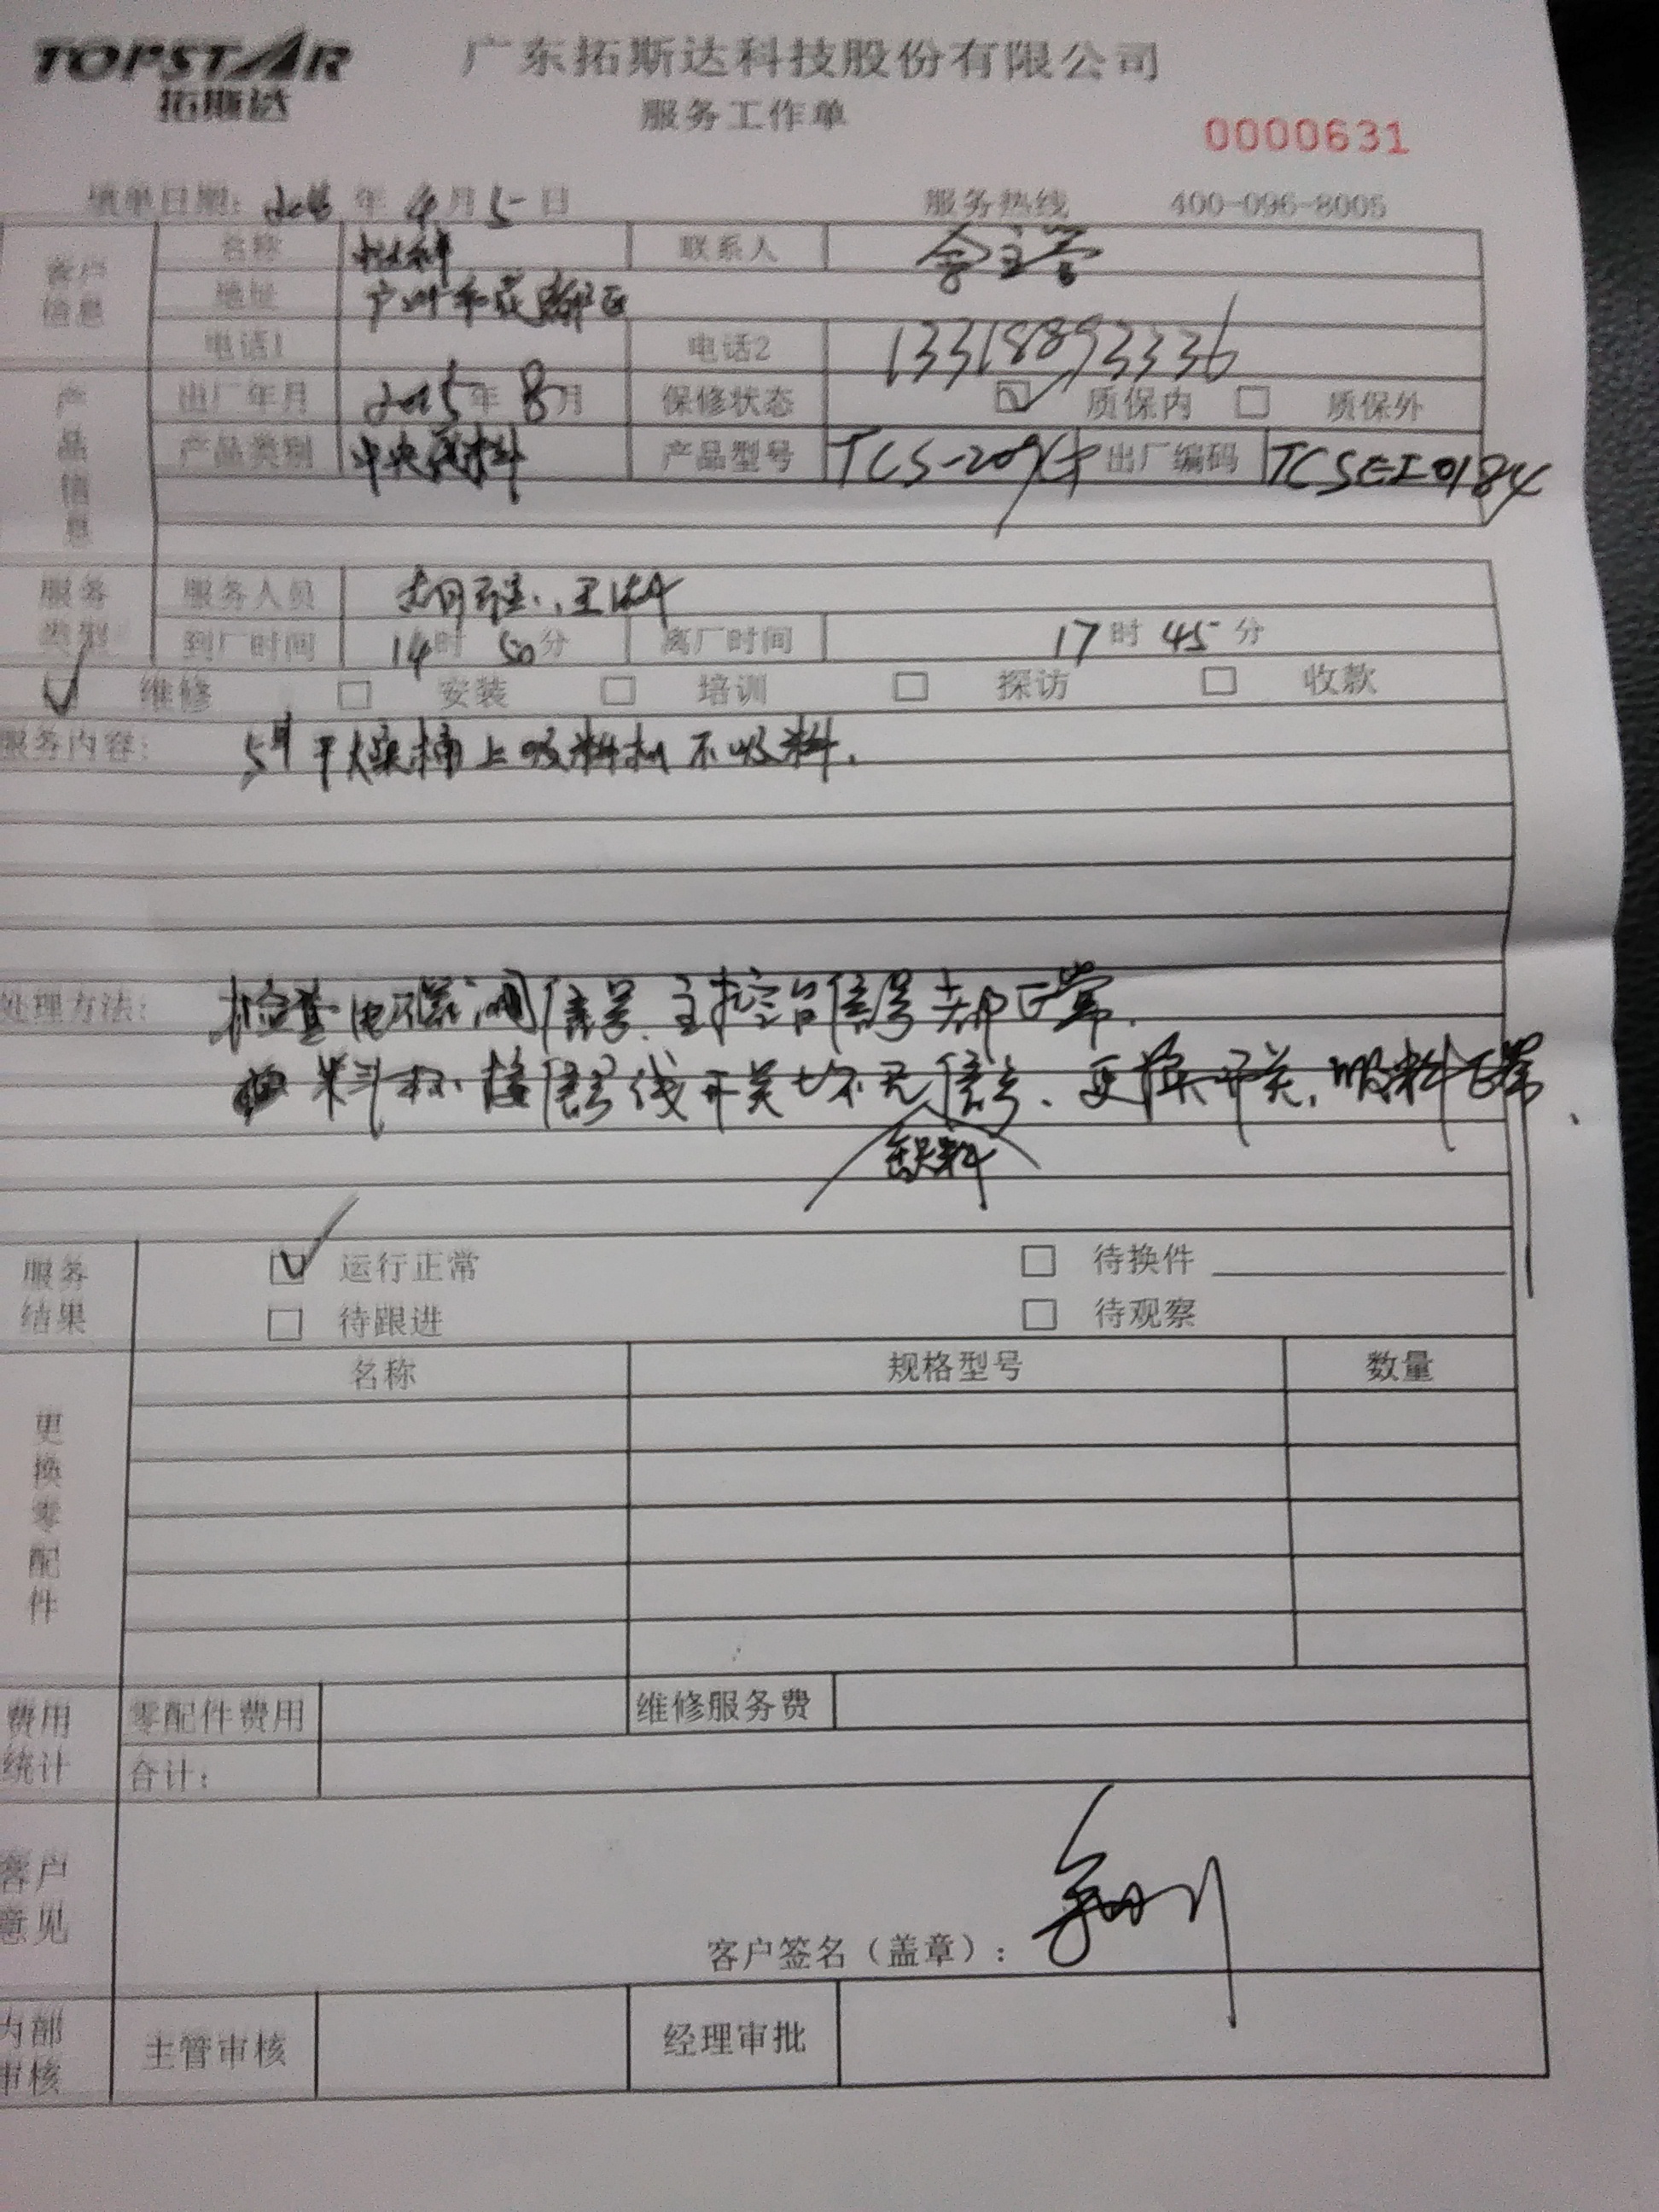 TOPSTAR
拓斯达
广东拓斯达科技股份有限公司
服务工作单
0000631
填单日期: 2016 年 4 月 5 日 服务热线 400-096-8005
客户信息
名称 联系人
地址 广州
电话1 电话2 13318893336
产品信息
出厂年月 2015年 8月 保修状态 质保内 质保外
产品类别 中央供料 产品型号 TCS-20 出厂编码 TCSEI0184
服务类型
服务人员
到厂时间 14时 50分 离厂时间 17时 45分
维修 安装 培训 探访 收款
服务内容: 5# 干燥桶上吸料机不吸料.
处理方法: 检查电磁阀信号、主控台信号都正常.
料杯接信号线开关 无缺料信号、更换开关,吸料正常、
服务结果
运行正常 待换件
待跟进 待观察
更换零配件
名称 规格型号 数量
费用统计
零配件费用 维修服务费
合计:
客户意见
客户签名(盖章):
内部审核
主管审核 经理审批